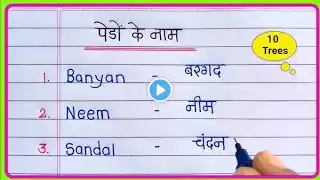 पेडों के नाम
10
Trees
1. Banyan - बरगद
2. Neem - नीम
3. Sandal - चंदन